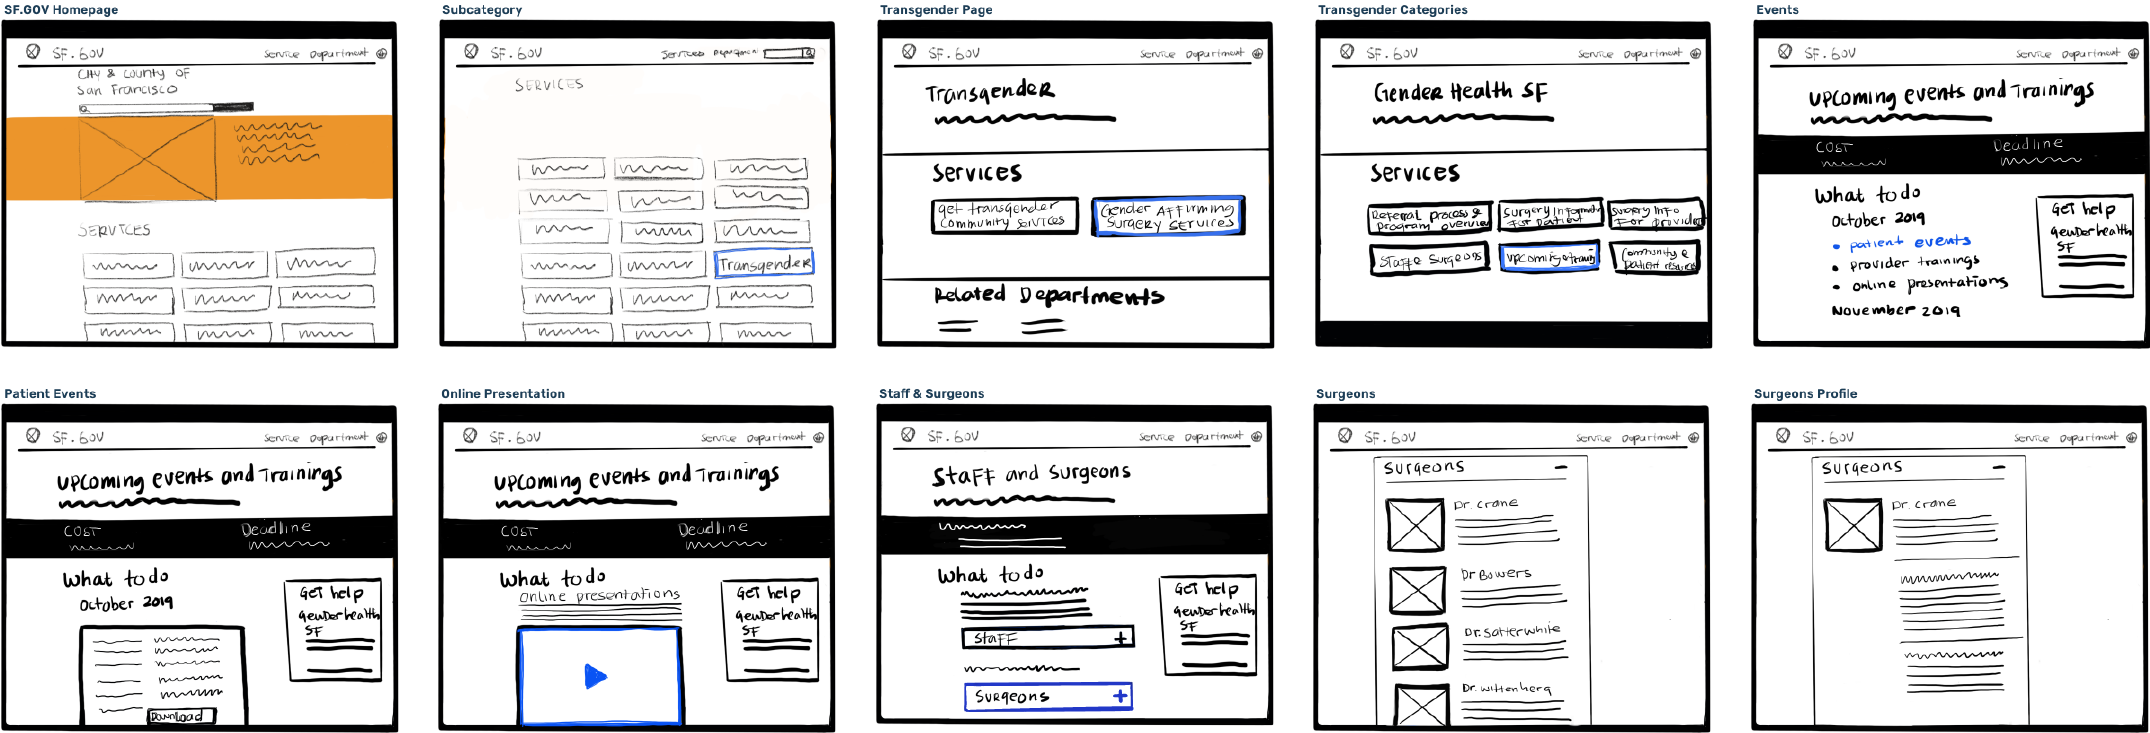 SF.GOV Homepage
SF.GOV
Service Department
City & County OF
San Francisco
SERVICES
Subcategory
SF.GOV
Services Department
SERVICES
Transgender
Transgender Page
SF.GOV
Service Department
Transgender
Services
get transgender
Community Services
Gender Affirming
Surgery Services
Related Departments
Transgender Categories
SF.GOV
Service Department
Gender Health SF
Services
Referral process &
program overview
Surgery Informa
For patient
surgery Info
For provider
Staff & Surgeons
upcoming & train
Community &
patient resources
Events
SF.GOV
Service Department
upcoming events and Trainings
COST
Deadline
What to do
October 2019
• patient events
• provider trainings
• online presentations
November 2019
GET help
Genderhealth
SF
Patient Events
SF.GOV
Service Department
upcoming events and Trainings
COST
Deadline
What to do
October 2019
Download
GET help
Genderhealth
SF
Online Presentation
SF.GOV
Service Department
upcoming events and Trainings
COST
Deadline
What to do
Online presentations
GET help
Genderhealth
SF
Staff & Surgeons
SF.GOV
Service Department
Staff and Surgeons
What to do
Staff +
Surgeons +
GET help
Genderhealth
SF
Surgeons
SF.GOV
Service Department
Surgeons
Dr. Crane
Dr Bowers
Dr. Satterwhite
Dr. Wittenberg
Surgeons Profile
SF.GOV
Service Department
Surgeons
Dr. Crane